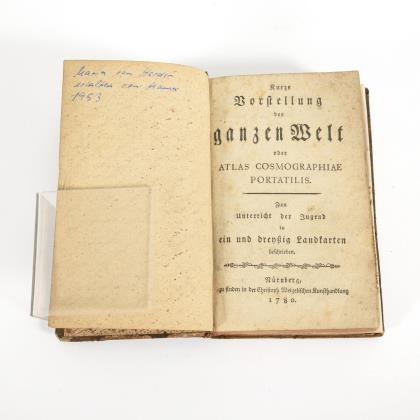 1953
Kurze
Vorstellung
der
ganzen Welt
oder
ATLAS COSMOGRAPHIAE
PORTATILIS.
Zum
Unterricht der Jugend
in
ein und dreyßig Landkarten
beschrieben.
Nürnberg,
zu finden in der Christoph Weigelischen Kunsthandlung
1780.